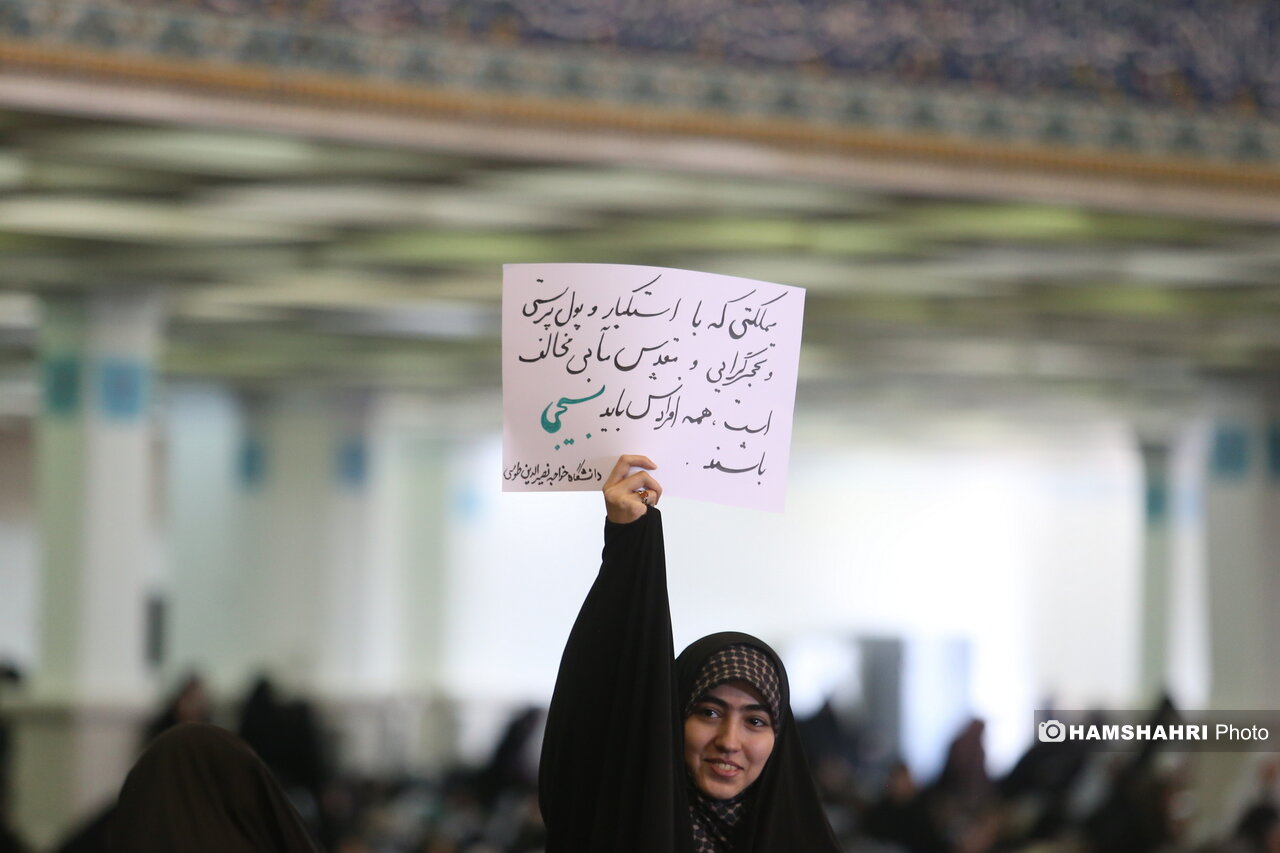 مملکتی که با استکبار و پول پرستی
و تحجرگرایی و مقدس مآبی مخالف
است ، همه افرادش باید بسیجی
باشند .
دانشگاه خواجه نصیرالدین طوسی
HAMSHAHRI Photo